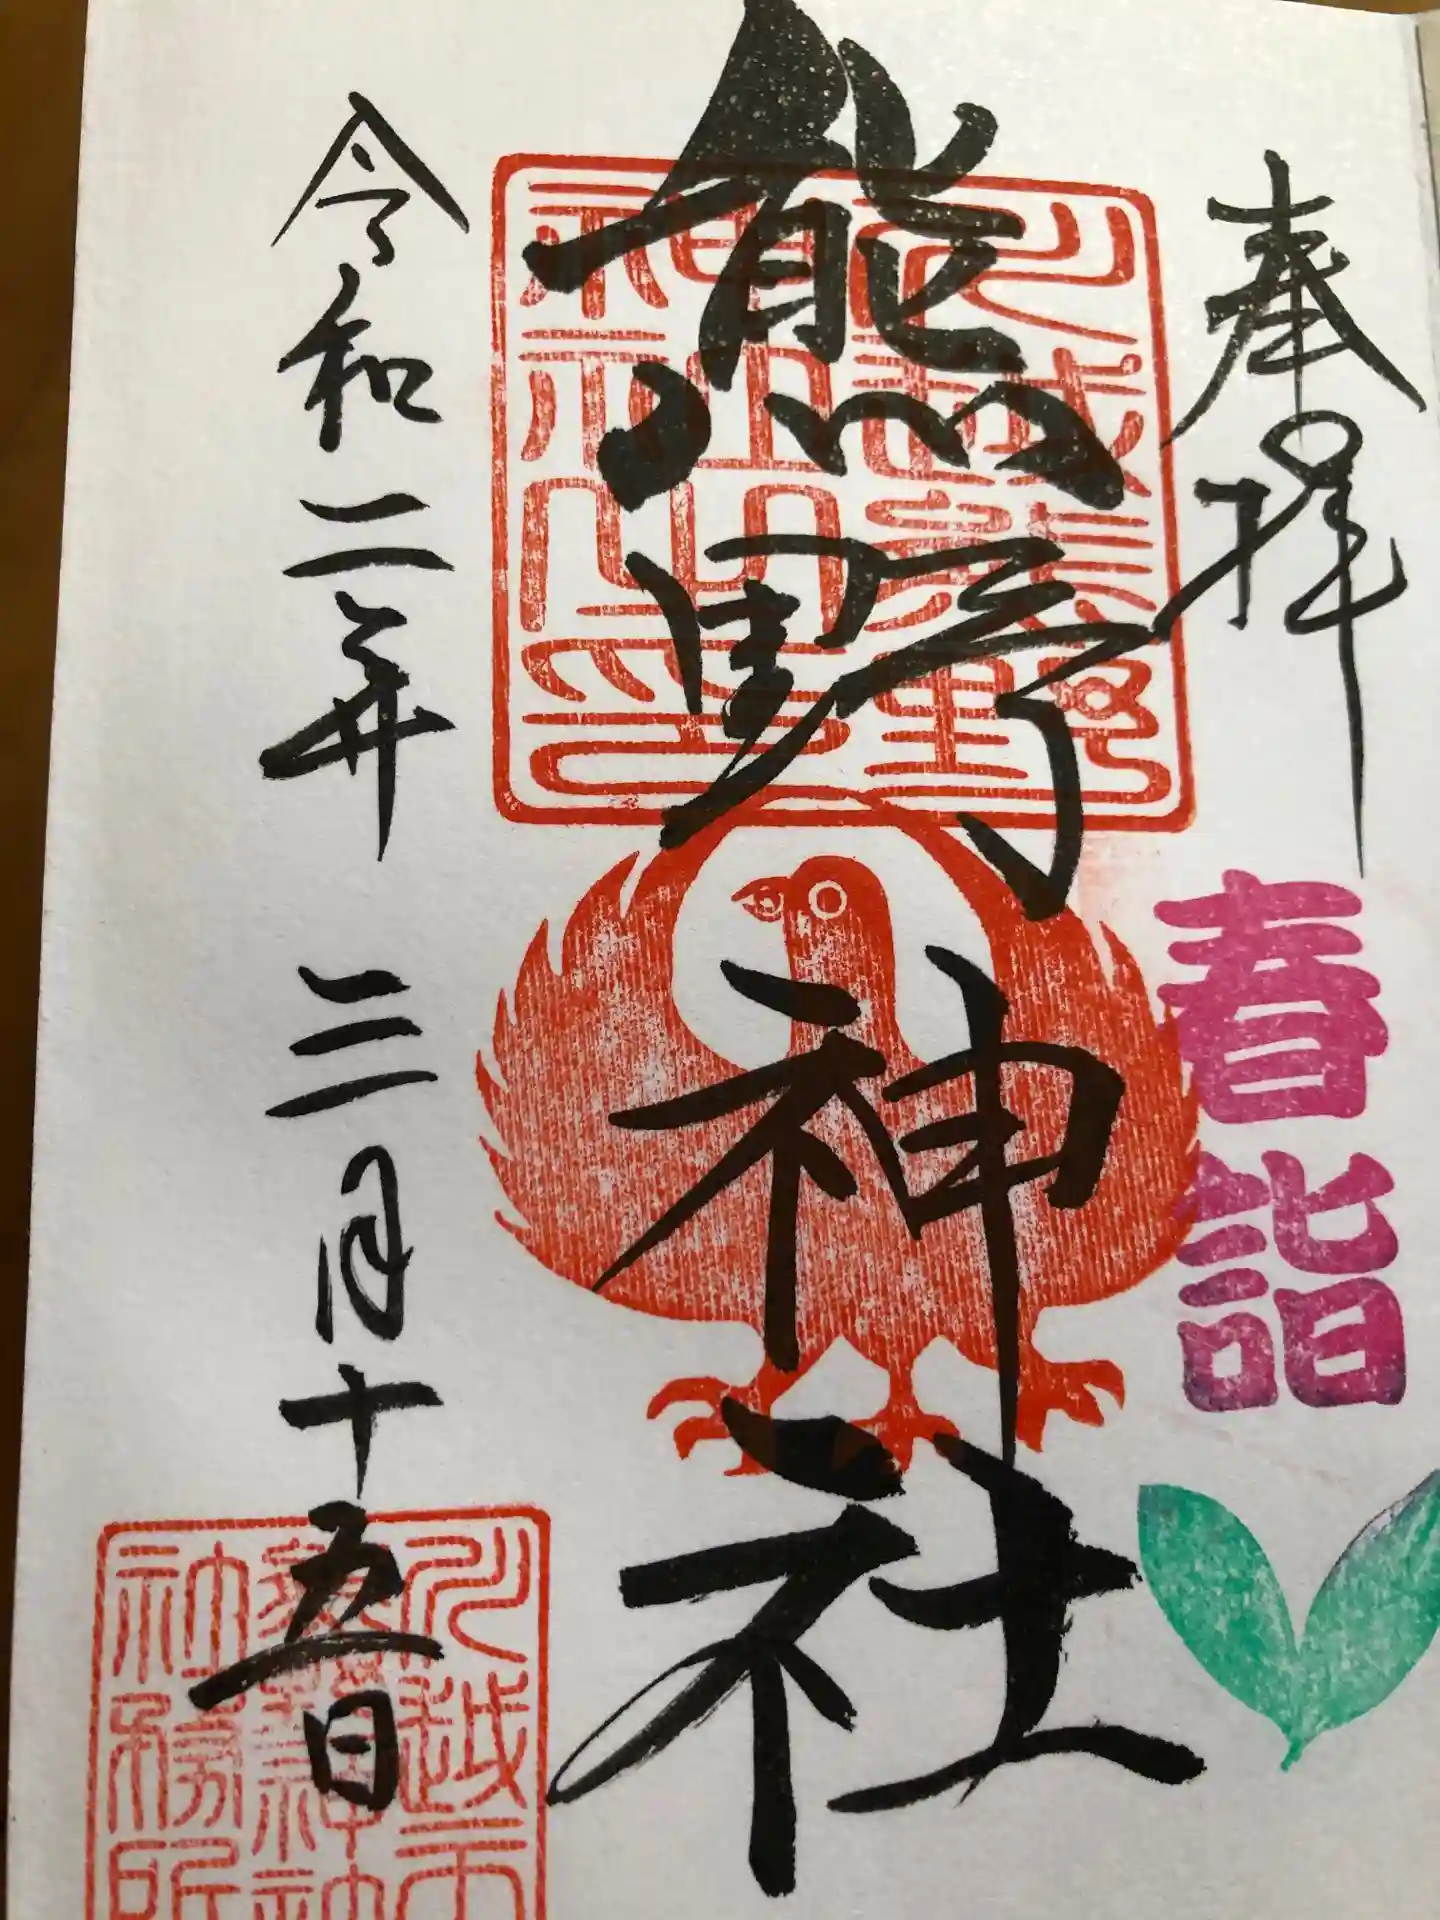 奉拝
春詣
熊野神社
川越熊野
神社之印
令和二年 三月十五日
川越市
熊野神社
社務所